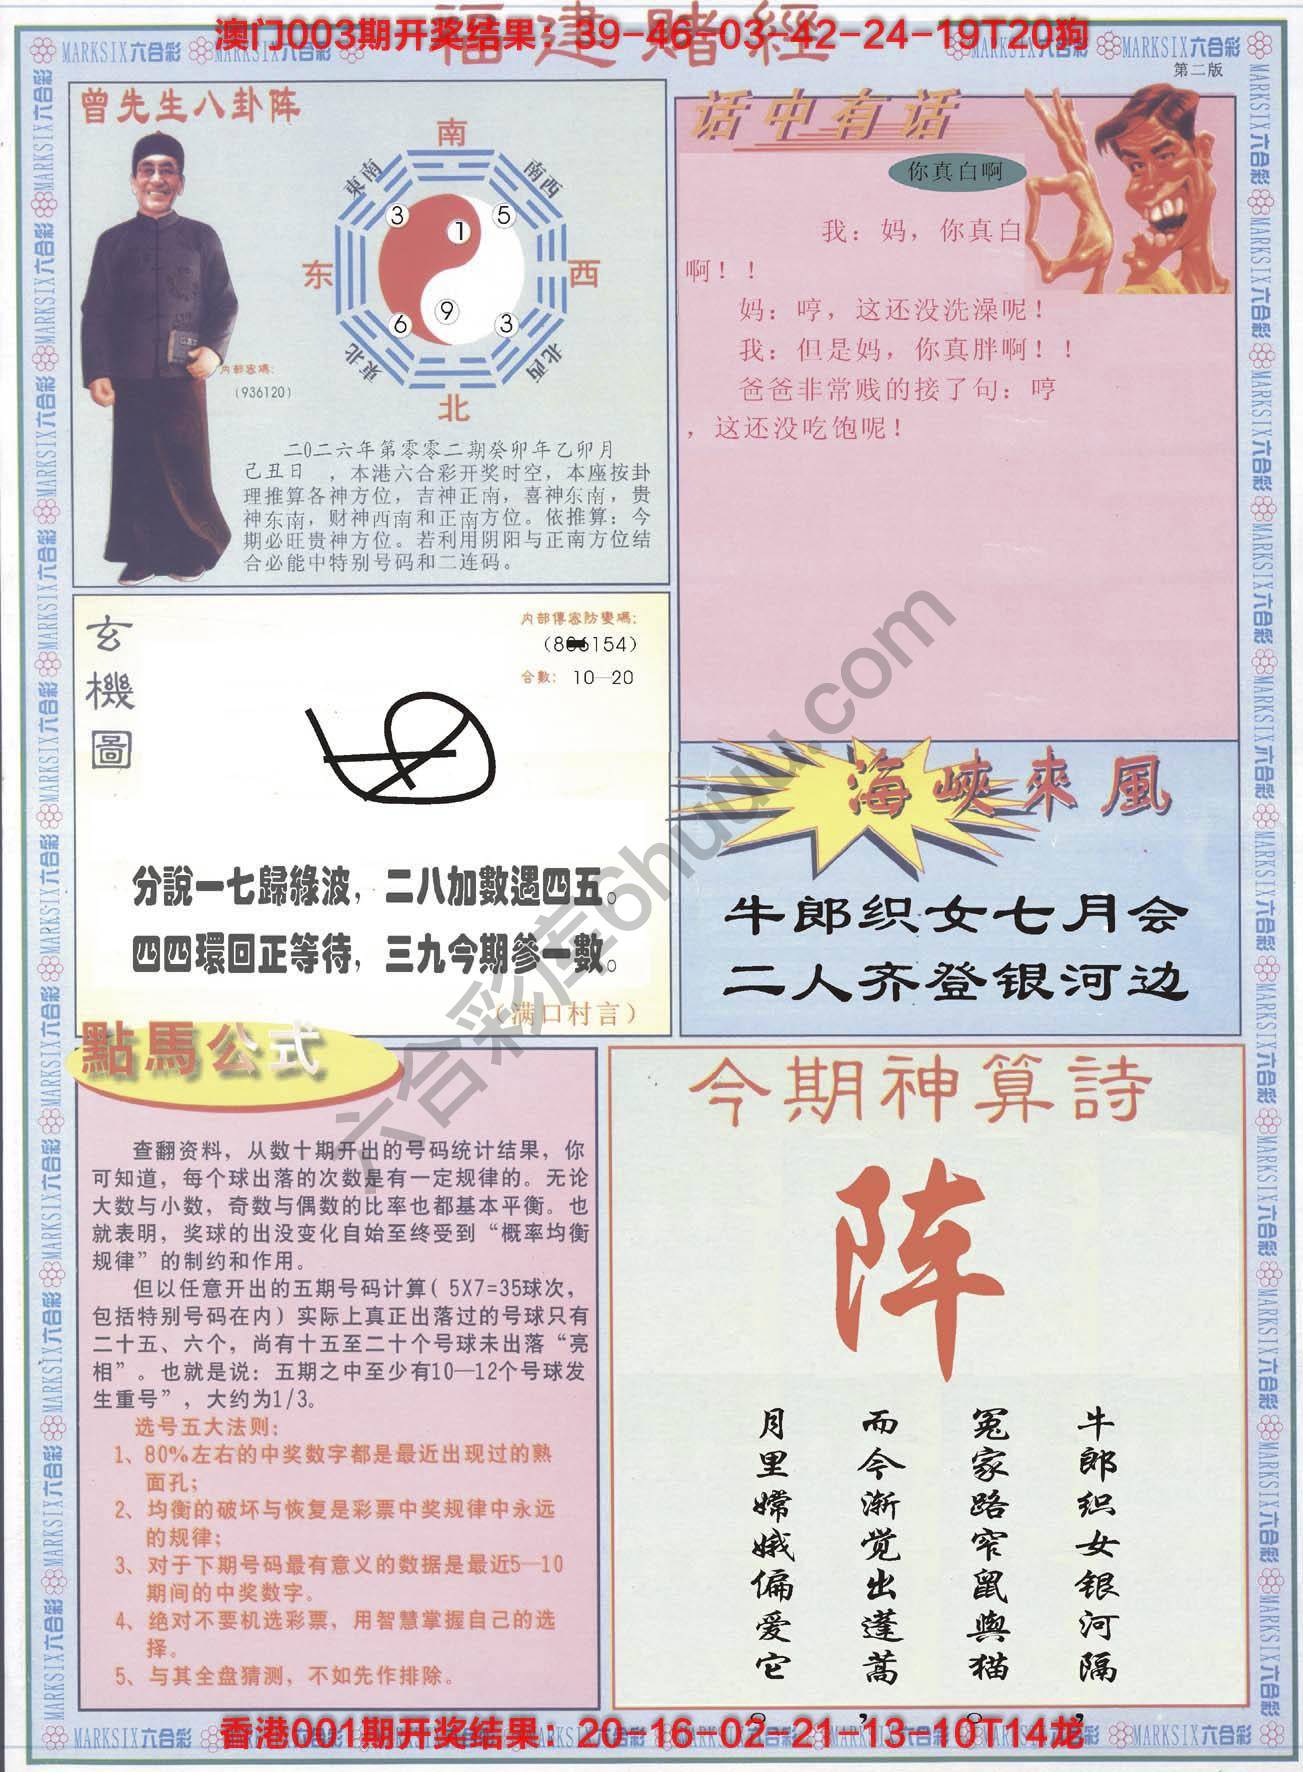 福建赌經
澳门003期开奖结果：39-46-03-42-24-19T20狗
MARKSIX六合彩
第二版
曾先生八卦阵
南
東南
南西
3
5
1
东
西
9
6
3
東北
北西
北
内部密碼：
（936120）
二0二六年第零零二期癸卯年乙卯月
己丑日 ，本港六合彩开奖时空，本座按卦
理推算各神方位，吉神正南，喜神东南，贵
神东南，财神西南和正南方位。依推算：今
期必旺贵神方位。若利用阴阳与正南方位结
合必能中特别号码和二连码。
话中有话
你真白啊
我：妈，你真白
啊！！
妈：哼，这还没洗澡呢！
我：但是妈，你真胖啊！！
爸爸非常贱的接了句：哼
，这还没吃饱呢！
玄機圖
内部傳密防變碼：
154）
合數： 10—20
分說一七歸綠波，二八加數遇四五。
四四環回正等待，三九今期參一數。
（满口村言）
海峽來風
牛郎织女七月会
二人齐登银河边
點馬公式
查翻资料，从数十期开出的号码统计结果，你
可知道，每个球出落的次数是有一定规律的。无论
大数与小数，奇数与偶数的比率也都基本平衡。也
就表明，奖球的出没变化自始至终受到“概率均衡
规律”的制约和作用。
但以任意开出的五期号码计算（5X7=35球次，
包括特别号码在内）实际上真正出落过的号球只有
二十五、六个，尚有十五至二十个号球未出落“亮
相”。也就是说：五期之中至少有10—12个号球发
生重号”，大约为1/3。
选号五大法则：
1、80%左右的中奖数字都是最近出现过的熟
面孔；
2、均衡的破坏与恢复是彩票中奖规律中永远
的规律；
3、对于下期号码最有意义的数据是最近5—10
期间的中奖数字。
4、绝对不要机选彩票，用智慧掌握自己的选
择。
5、与其全盘猜测，不如先作排除。
今期神算詩
阵
牛郎织女银河隔，
冤家路窄鼠與猫。
而今渐觉出蓬蒿，
月里嫦娥偏爱它。
六合彩库6huuu.com
香港001期开奖结果：20-16-02-21-13-10T14龙